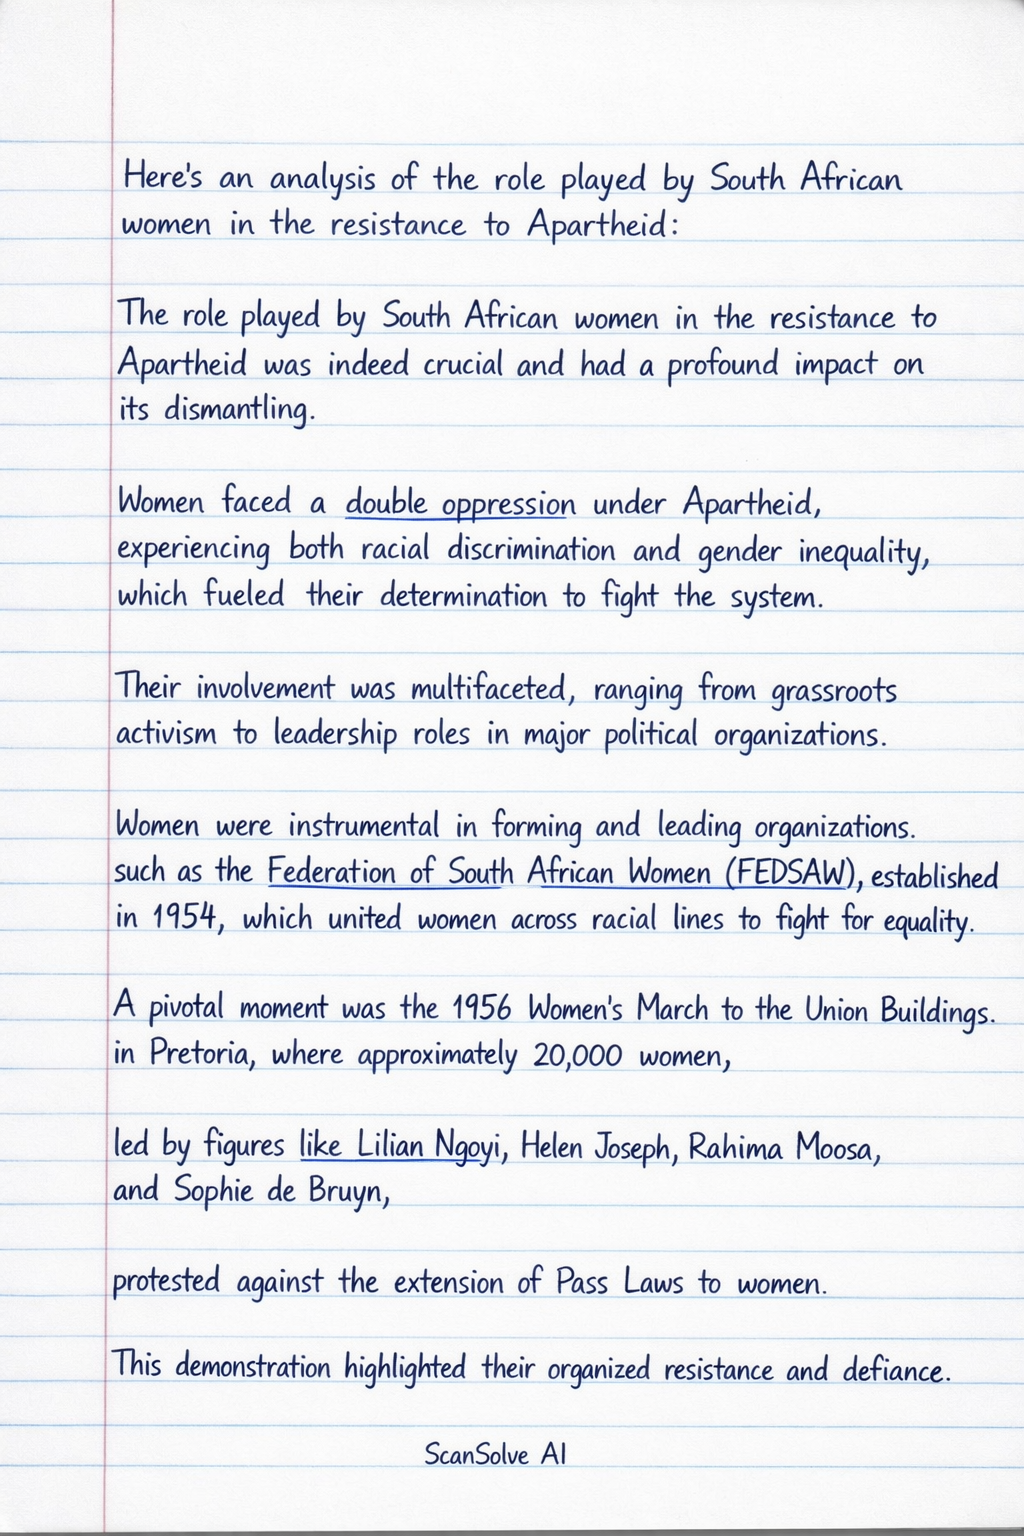 Here's an analysis of the role played by South African
women in the resistance to Apartheid:
The role played by South African women in the resistance to
Apartheid was indeed crucial and had a profound impact on
its dismantling.
Women faced a double oppression under Apartheid,
experiencing both racial discrimination and gender inequality,
which fueled their determination to fight the system.
Their involvement was multifaceted, ranging from grassroots
activism to leadership roles in major political organizations.
Women were instrumental in forming and leading organizations.
such as the Federation of South African Women (FEDSAW), established
in 1954, which united women across racial lines to fight for equality.
A pivotal moment was the 1956 Women's March to the Union Buildings.
in Pretoria, where approximately 20,000 women,
led by figures like Lilian Ngoyi, Helen Joseph, Rahima Moosa,
and Sophie de Bruyn,
protested against the extension of Pass Laws to women.
This demonstration highlighted their organized resistance and defiance.
ScanSolve AI